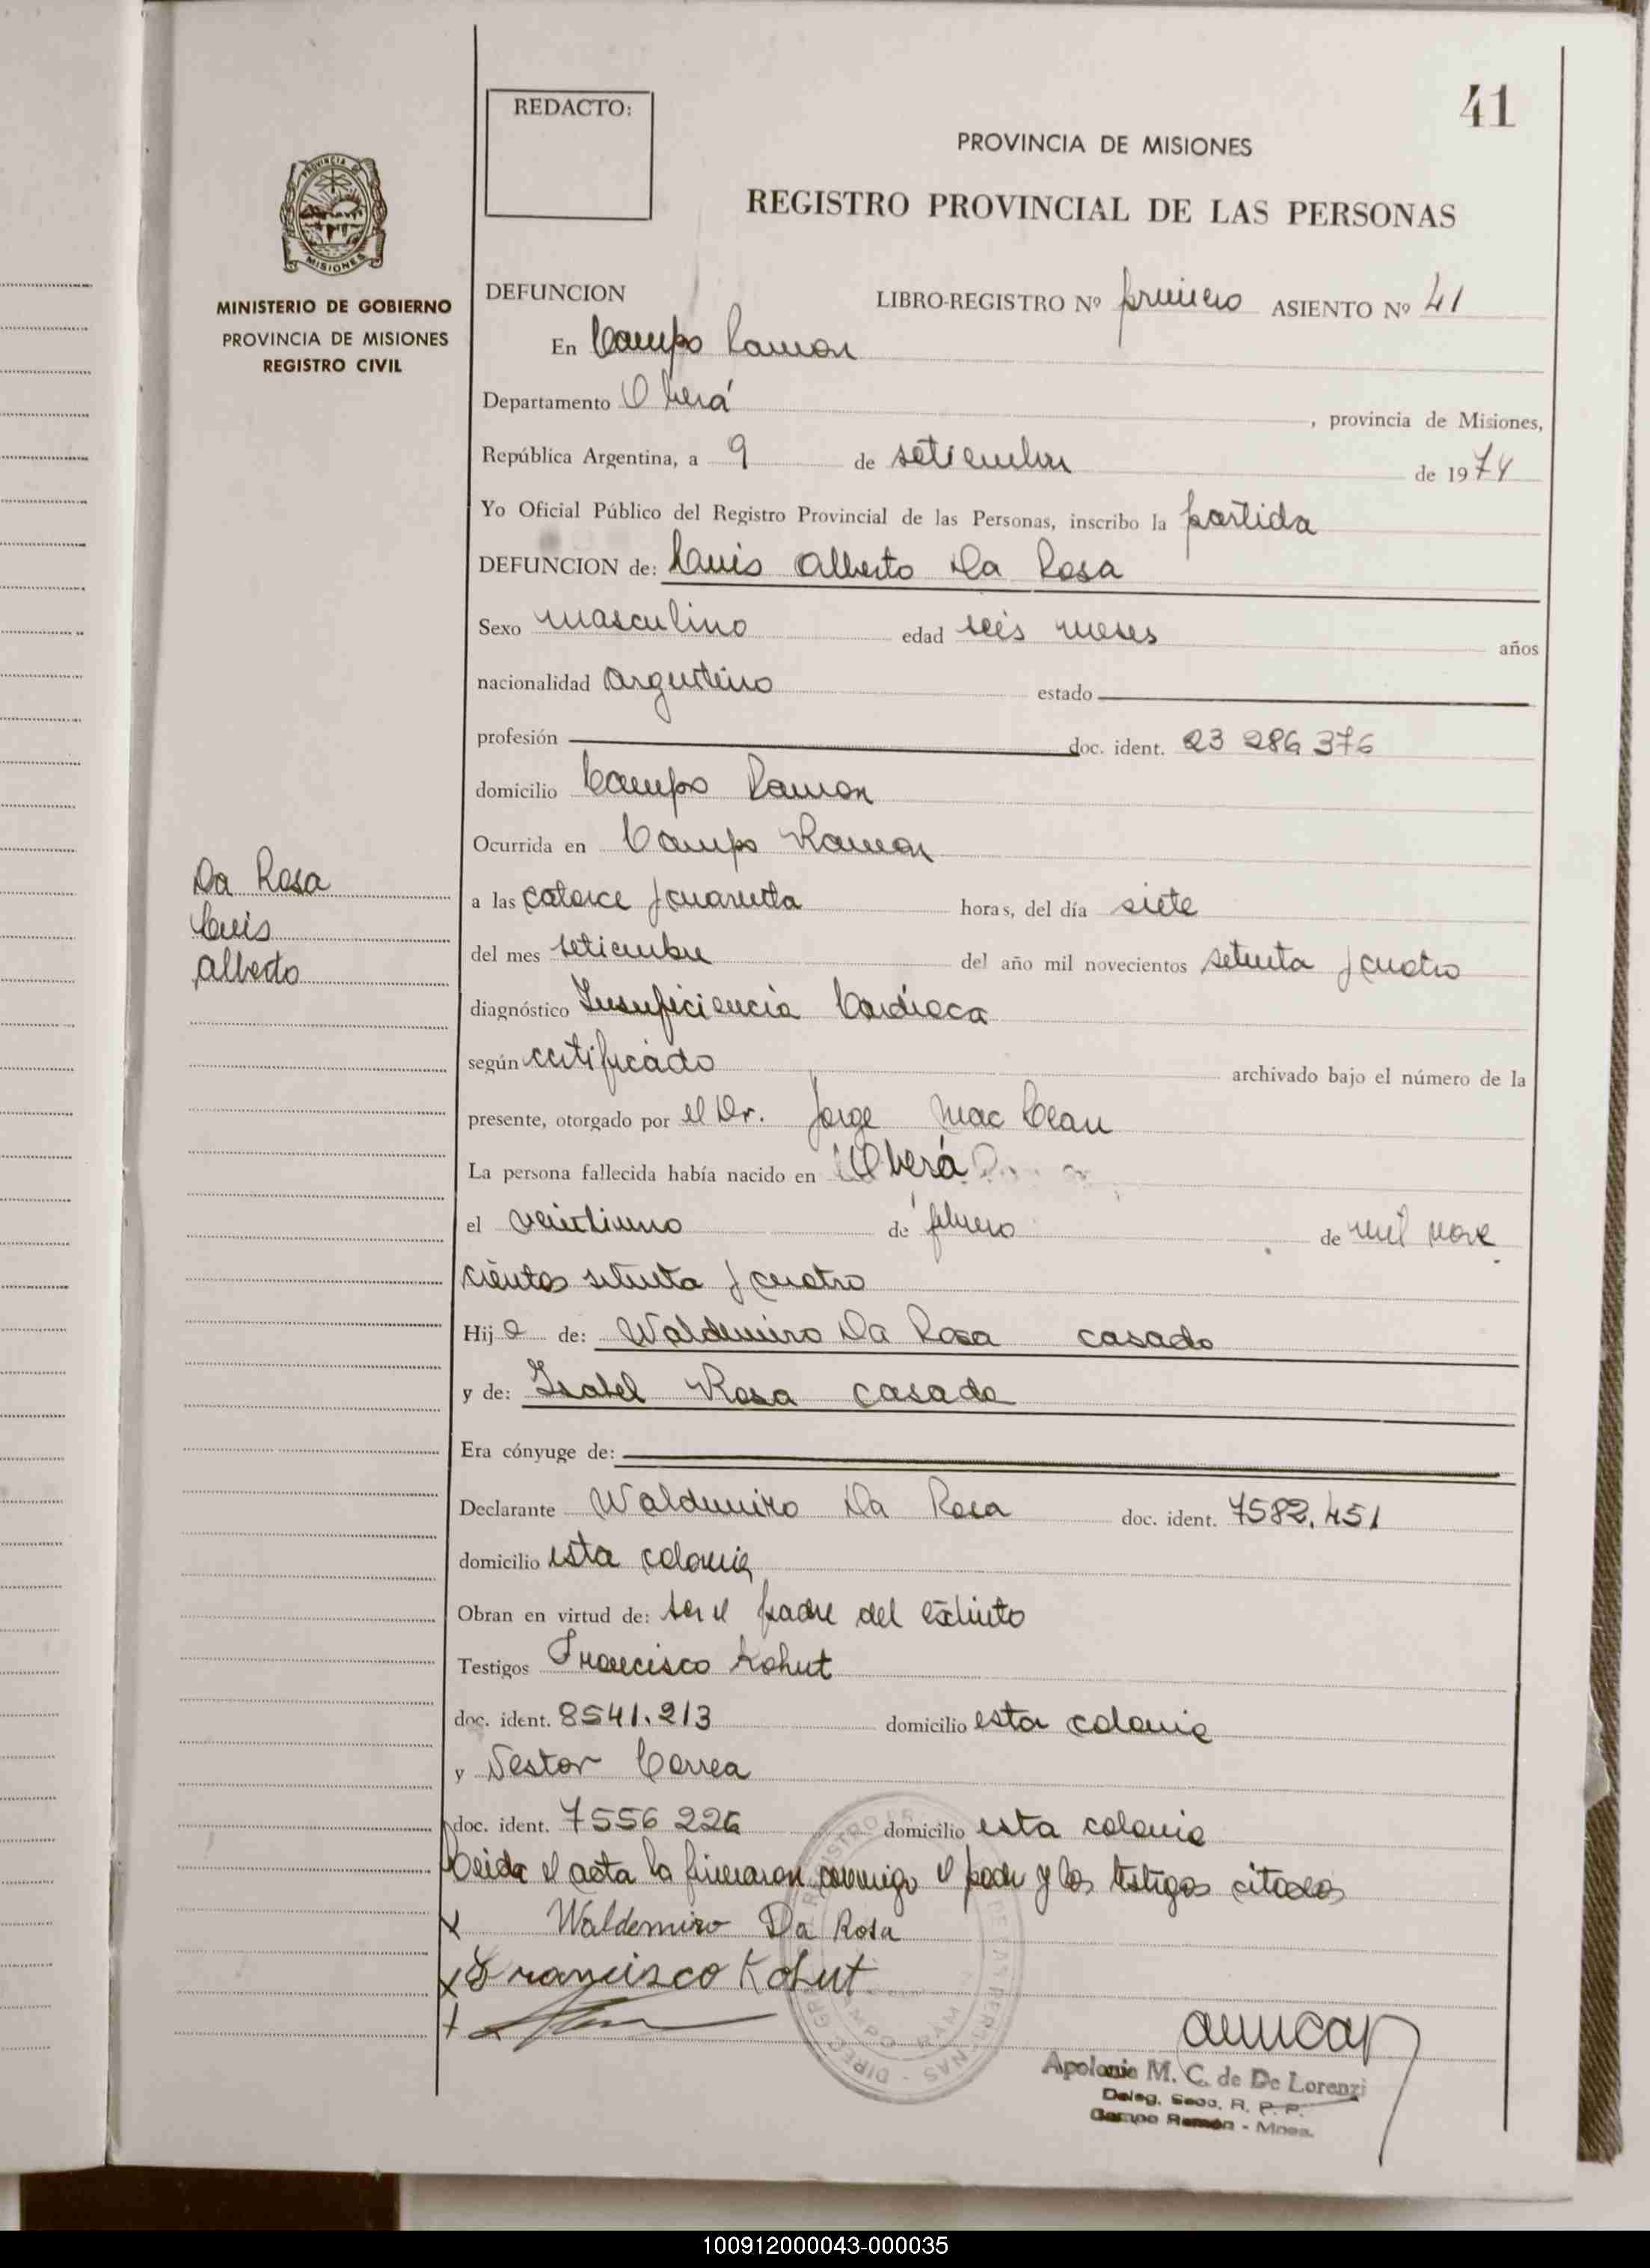 41
REDACTO:
PROVINCIA DE MISIONES
REGISTRO PROVINCIAL DE LAS PERSONAS
PROVINCIA DE
MISIONES
MINISTERIO DE GOBIERNO
PROVINCIA DE MISIONES
REGISTRO CIVIL
DEFUNCION LIBRO-REGISTRO Nº primero ASIENTO Nº 41
En Campo Ramon
Departamento Oberá, provincia de Misiones,
República Argentina, a 9 de setiembre de 1974
Yo Oficial Público del Registro Provincial de las Personas, inscribo la partida
DEFUNCION de: Luis Alberto Da Rosa
Sexo masculino edad seis meses años
nacionalidad argentino estado
profesión doc. ident. 23 286 376
domicilio Campo Ramon
Ocurrida en Campo Ramon
Da Rosa
Luis
Alberto
a las catorce y cuarenta horas, del día siete
del mes setiembre del año mil novecientos setenta y cuatro
diagnóstico Insuficiencia Cardiaca
según certificado archivado bajo el número de la
presente, otorgado por el Dr. Jorge Mac Lean
La persona fallecida había nacido en Oberá
el veintiuno de febrero de mil nove
cientos setenta y cuatro
Hijo de: Waldemiro Da Rosa casado
y de: Isabel Rosa casada
Era cónyuge de:
Declarante Waldemiro Da Rosa doc. ident. 7582.451
domicilio esta colonia
Obran en virtud de: ser el padre del extinto
Testigos Francisco Kohut
doc. ident. 8541.213 domicilio esta colonia
y Nestor Correa
doc. ident. 7556 226 domicilio esta colonia
Leida el acta la firmaron conmigo el padre y los testigos citados
x Waldemiro Da Rosa
x Francisco Kohut
Apolonia M. C. de De Lorenzi
Deleg. Secc. R. P. P.
Campo Ramón - Mnes.
100912000043-000035